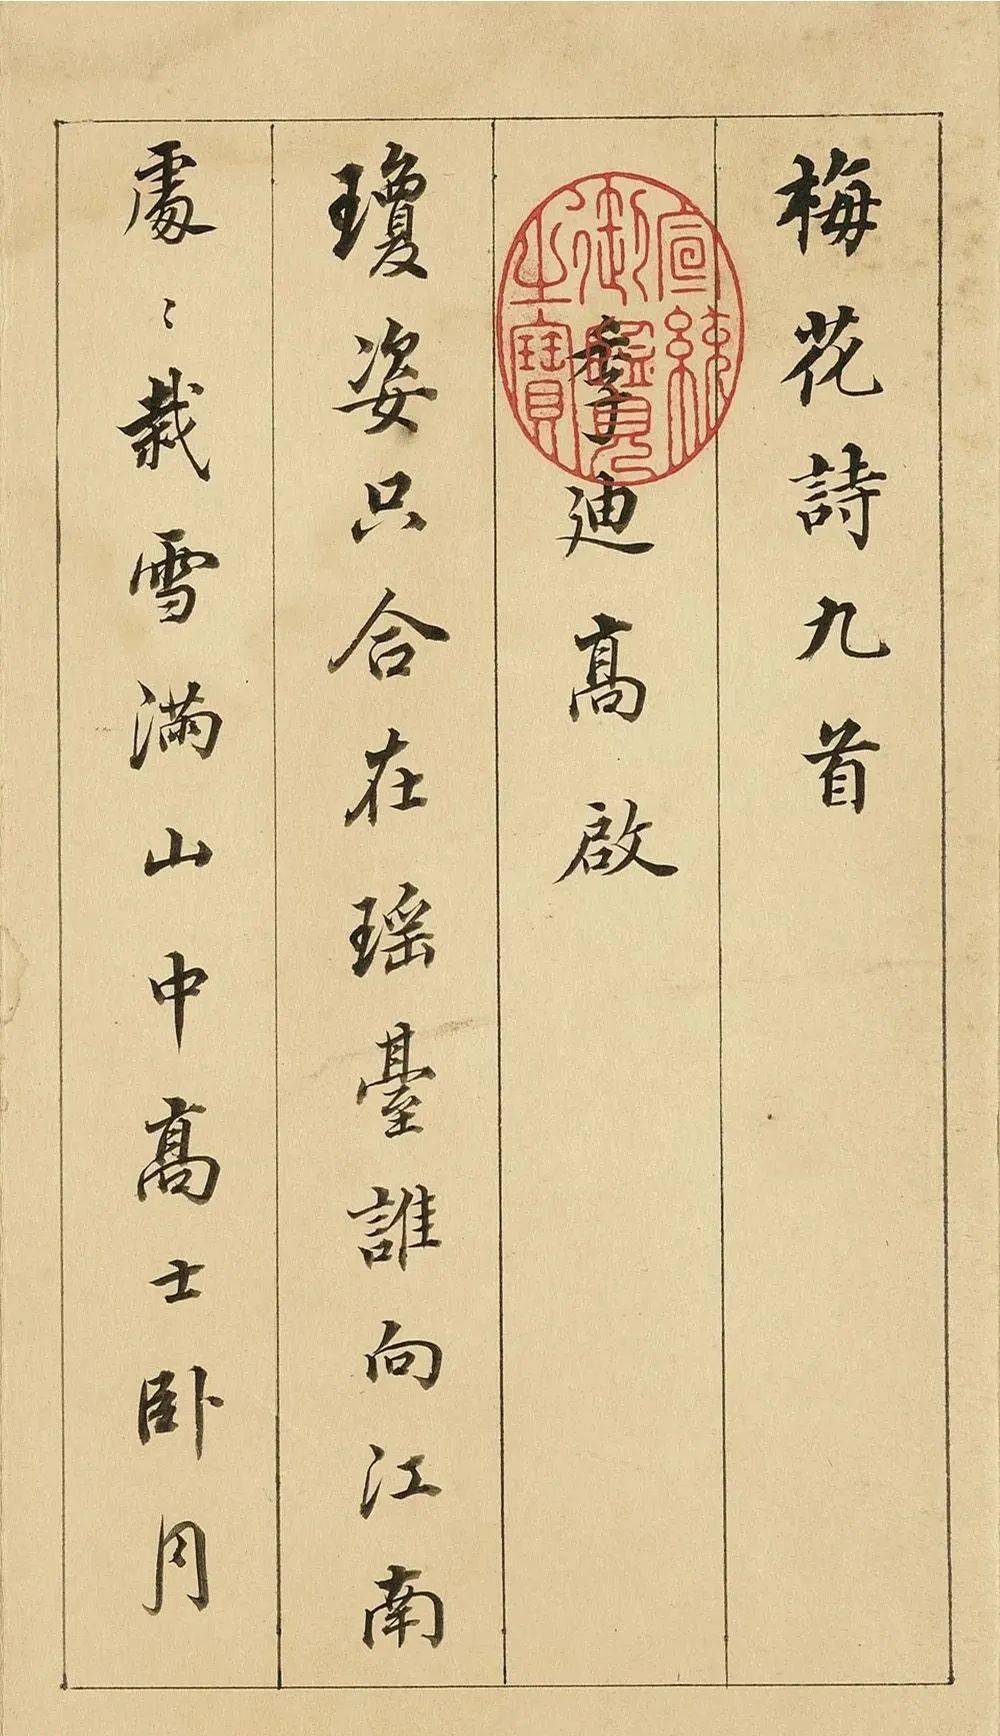 梅花詩九首
季迪高啟
瓊姿只合在瑶臺誰向江南
處〻栽雪滿山中高士卧月
宣統御覽之寶